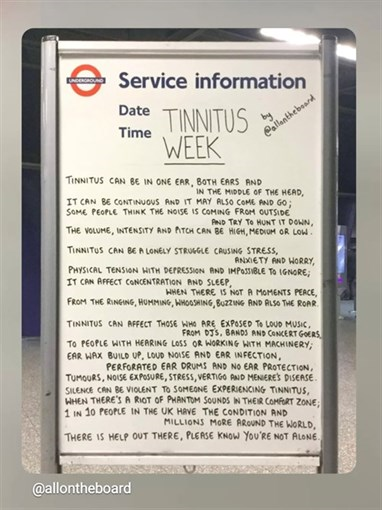 UNDERGROUND
Service information
Date
Time
TINNITUS
WEEK
by
@allontheboard
TINNITUS CAN BE IN ONE EAR, BOTH EARS AND
IN THE MIDDLE OF THE HEAD,
IT CAN BE CONTINUOUS AND IT MAY ALSO COME AND GO;
SOME PEOPLE THINK THE NOISE IS COMING FROM OUTSIDE
AND TRY TO HUNT IT DOWN,
THE VOLUME, INTENSITY AND PITCH CAN BE HIGH, MEDIUM OR LOW.
TINNITUS CAN BE A LONELY STRUGGLE CAUSING STRESS,
ANXIETY AND WORRY,
PHYSICAL TENSION WITH DEPRESSION AND IMPOSSIBLE TO IGNORE;
IT CAN AFFECT CONCENTRATION AND SLEEP,
WHEN THERE IS NOT A MOMENTS PEACE,
FROM THE RINGING, HUMMING, WHOOSHING, BUZZING AND ALSO THE ROAR.
TINNITUS CAN AFFECT THOSE WHO ARE EXPOSED TO LOUD MUSIC,
FROM DJS, BANDS AND CONCERT GOERS,
TO PEOPLE WITH HEARING LOSS OR WORKING WITH MACHINERY;
EAR WAX BUILD UP, LOUD NOISE AND EAR INFECTION,
PERFORATED EAR DRUMS AND NO EAR PROTECTION,
TUMOURS, NOISE EXPOSURE, STRESS, VERTIGO AND MENIERE'S DISEASE.
SILENCE CAN BE VIOLENT TO SOMEONE EXPERIENCING TINNITUS,
WHEN THERE'S A RIOT OF PHANTOM SOUNDS IN THEIR COMFORT ZONE;
1 IN 10 PEOPLE IN THE UK HAVE THE CONDITION AND
MILLIONS MORE AROUND THE WORLD,
THERE IS HELP OUT THERE, PLEASE KNOW YOU'RE NOT ALONE.
@allontheboard